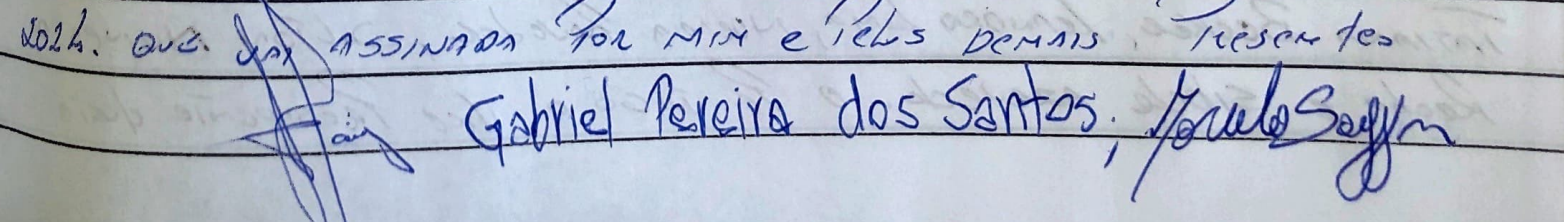 2024. Que vai assinada por mim e pelos demais. Presentes
Gabriel Pereira dos Santos, Marcelo